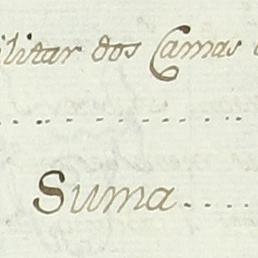 ilitar dos Camas
Suma.....